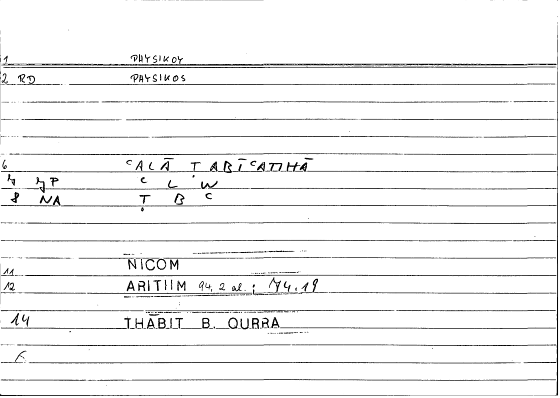 1 PHYSIKOY
2 RD PHYSIKOS
6 ᶜALĀ ṬABĪᶜATIHĀ
7 JP ᶜ L W
8 NA Ṭ B ᶜ
11 NICOM
12 ARITIIM 94, 2 al.; 174.19
14 THĀBIT B. QURRA